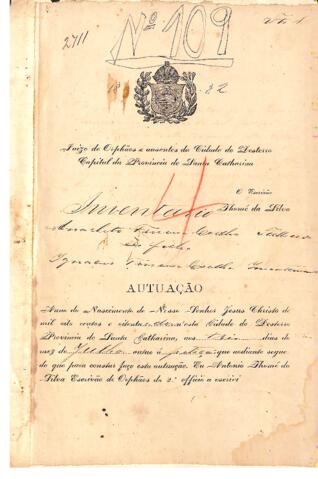 2711
Nº 109
18 82
Juizo de Orphãos e ausentes da Cidade do Desterro
Capital da Provincia de Santa Catharina
O Escrivão
Thomé da Silva
Inventario
Coelho
Ignacio Coelho
AUTUAÇÃO
Anno do Nascimento de Nosso Senhor Jesus Christo de
mil oito centos e oitenta e n'esta Cidade do Desterro
Provincia de Santa Catharina, aos dias do
mez de Julho autuo a petição que adiante segue
do que para constar faço esta autuação. Eu Antonio Thomé da
Silva Escrivão de Orphãos do 2º officio a escrevi